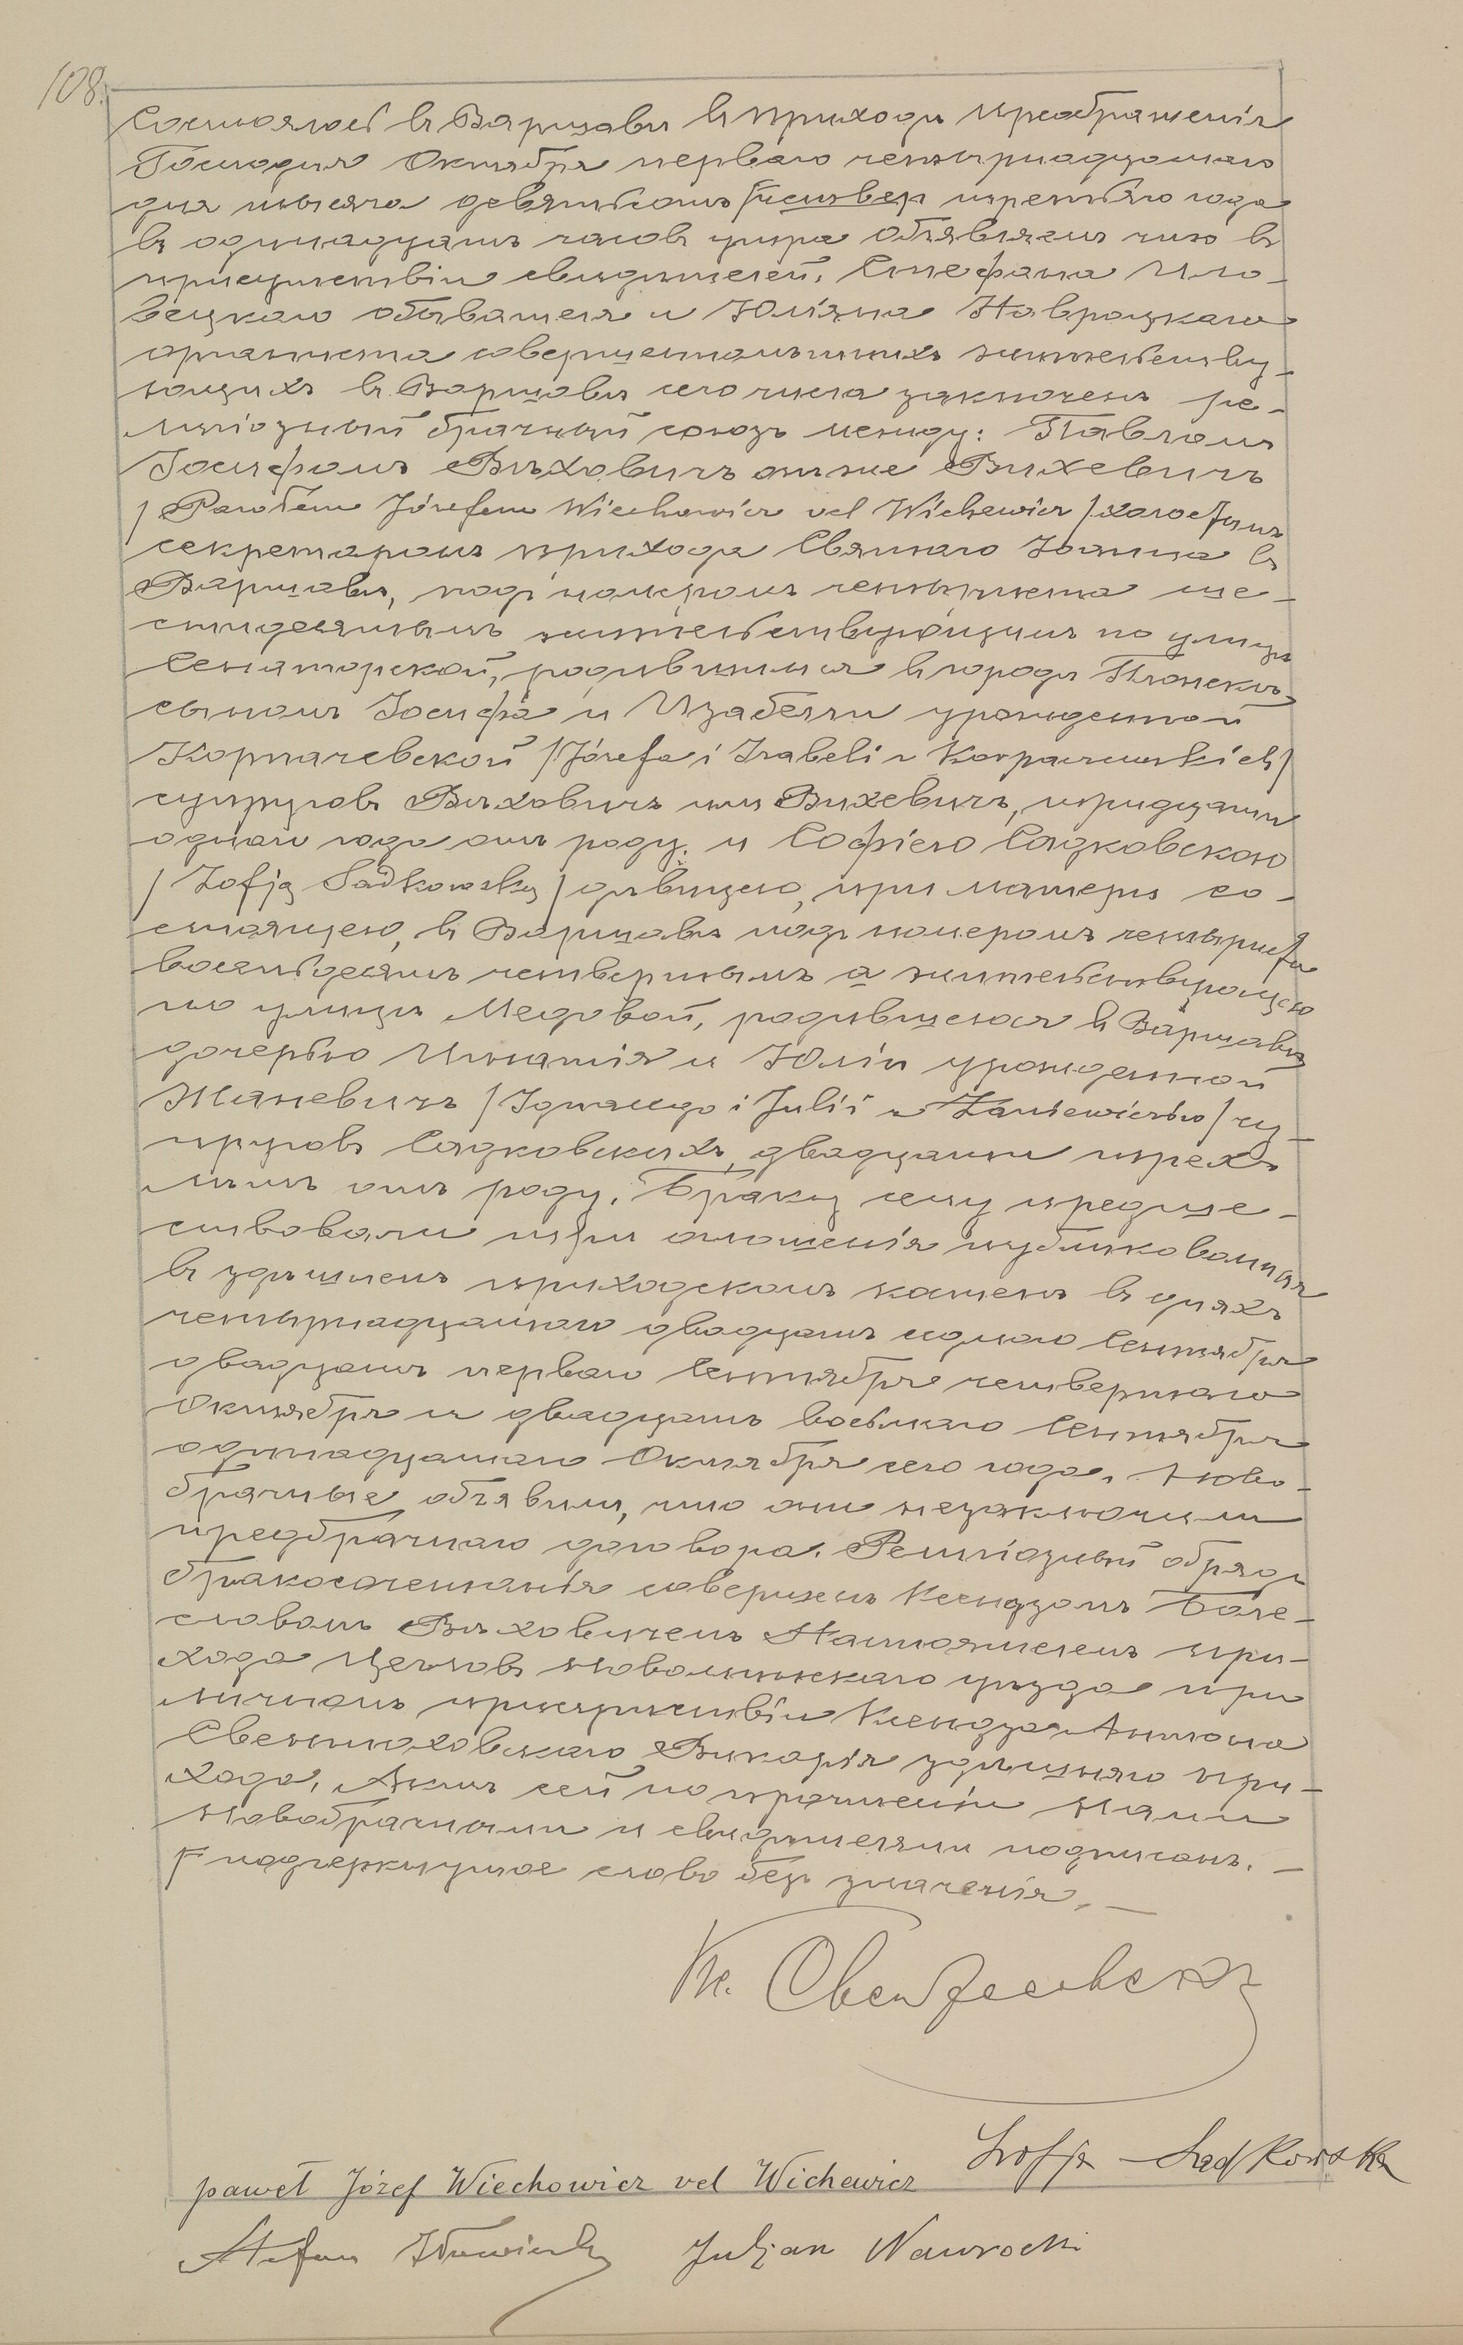 108.
Состоялось въ Варшавѣ въ приходѣ Преображенія
Господня Октября перваго четырнадцатаго
дня тысяча девятьсотъ /четвер третьяго года
въ одинадцать часовъ утра Объявляемъ что въ
присутствіи свидѣтелей, Стефана Ило-
вецкаго обывателя и Юліяна Навроцкаго
органиста совершеннолѣтнихъ жительству-
ющихъ въ Варшавѣ сего числа заключенъ ре-
лигіозный брачный союзъ между: Павломъ
Іосифомъ Вѣховичъ онъ же Вихевичъ
/Pawłem Józefem Wiechowicz vel Wichewicz/ холостымъ
секретаромъ прихода Святаго Іоанна въ
Варшавѣ, подъ номеромъ четыреста ше-
стидесятымъ жительствующимъ по улицѣ
Сенаторской, родившимся въ городѣ Плонскѣ
сыномъ Іосифа и Изабелли урожденной
Корпачевской /Józefa i Izabeli z Korpaczewskich/
супруговъ Вѣховичъ или Вихевичъ, тридцати
одного года отъ роду, и Софіею Садковскою
/Zofją Sadkowską/ дѣвицею, при матери со-
стоящею, въ Варшавѣ подъ номеромъ четыриста
восемьдесятъ четвертымъ а жительствующею
по улицѣ Медовой, родившеюся въ Варшавѣ
дочерью Игнатія и Юліи урожденной
Жаневичъ /Ignacego i Julii z Żaniewiczów/ су-
пруговъ Садковскихъ, двадцати трехъ
лѣтъ отъ роду. Браку сему предше-
ствовали три оглашенія публикованныя
въ здѣшнемъ приходскомъ костелѣ въ дняхъ
четырнадцатаго двадцать седмаго Сентября
двадцать перваго Сентября четвертаго
Октября и двадцать восьмаго Сентября
одинадцатаго Октября сего года. Ново-
брачные объявили, что они незаключили
предбрачнаго договора. Религіозный обрядъ
бракосочетанія совершенъ Ксендзомъ Боле-
славомъ Вѣховичемъ Настоятелемъ при-
хода Цегловъ Новоминскаго уѣзда при
личномъ присутствіи Ксендза Антона
Свентоховскаго Викарія здѣшняго при-
хода. Актъ сей по прочтеніи Нами
Новобрачными и свидѣтелями подписанъ. —
/ подчеркнутое слово безъ значенія. —
Кс.
paweł Józef Wiechowicz vel Wichewicz Zofja Sadkowska
Stefan Iłowiecki Juljan Nawrocki